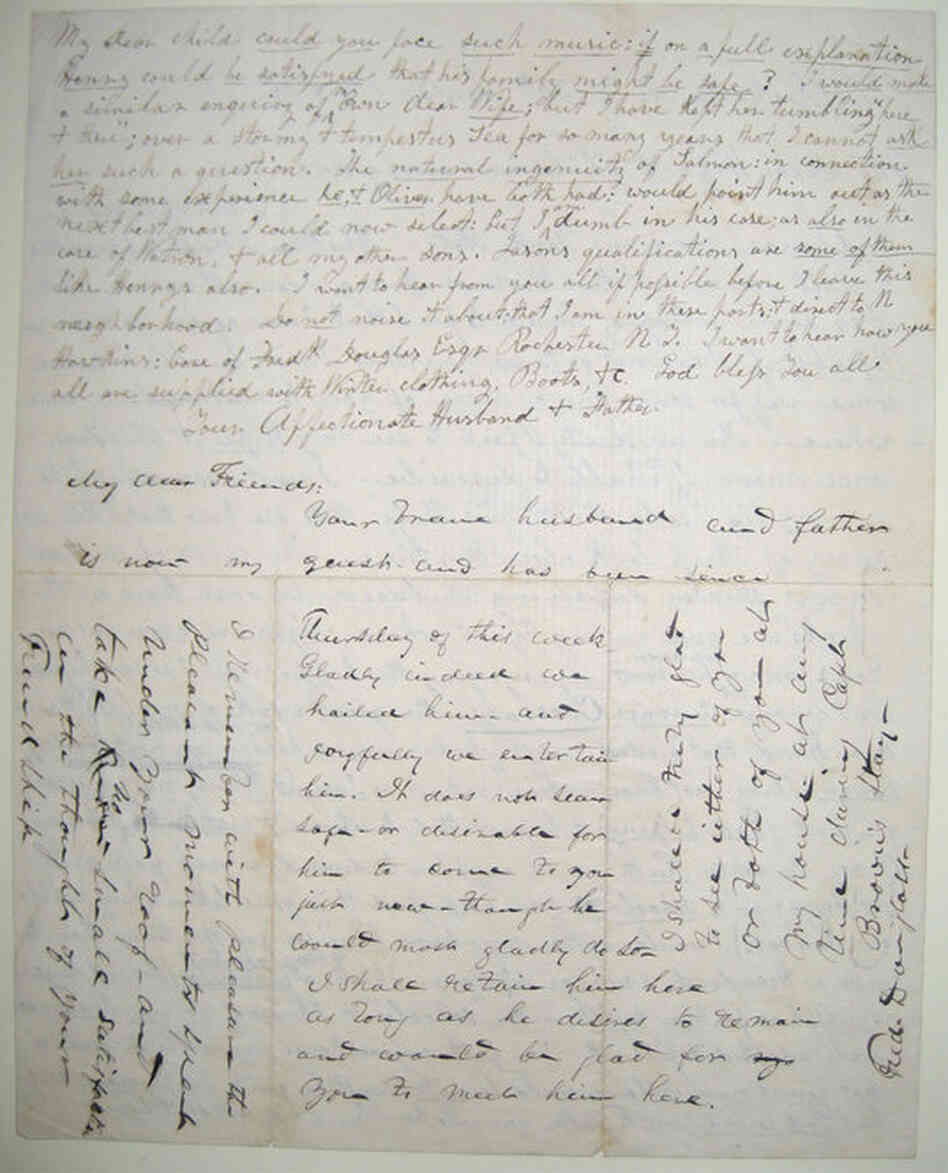 My dear child could you face such music: if on a full explanation
Henry could be satisfyed that his family might be safe? I would make
a similar enquiry of own dear Wife; but I have kept her tumbling "here
& there"; over a stormy & tempestus Sea for so many years that I cannot ask
her such a question. The natural ingenuity of Salmon: in connection
with some experience he, & Oliver have both had: would point him out as the
next best man I could now select: but I dumb in his case; as also in the
case of Watson, & all my other sons. Jasons qualifications are some of them
like Henrys also. I want to hear from you all if possible before I leave this
neighborhood. Do not noise it about that I am in these parts: & direct to N
Hawkins: Care of Fredk Douglas Esqr Rochester N Y. I want to hear how you
all are supplied with Winter clothing, Boots, &c. God bless You all
Your Affectionate Husband & Father
My dear Friends:
Your brave husband and father
is now my guest and has been since
Thursday of this week
Gladly indeed we
hailed him and
joyfully we entertain
him. It does not seem
safe or desirable for
him to come to you
just now - though he
would most gladly do so -
I shall retain him here
as long as he desires to remain
and would be glad for
you to meet him here.
I shall be truly glad
to see either of you
or both of you at
my house at any
time during Capt
Browns Stay -
Fred. Douglass
I Remember with pleasure the
pleasant moments spent
under your roof - and
take no small satisfaction
in the thought of your
Friendship